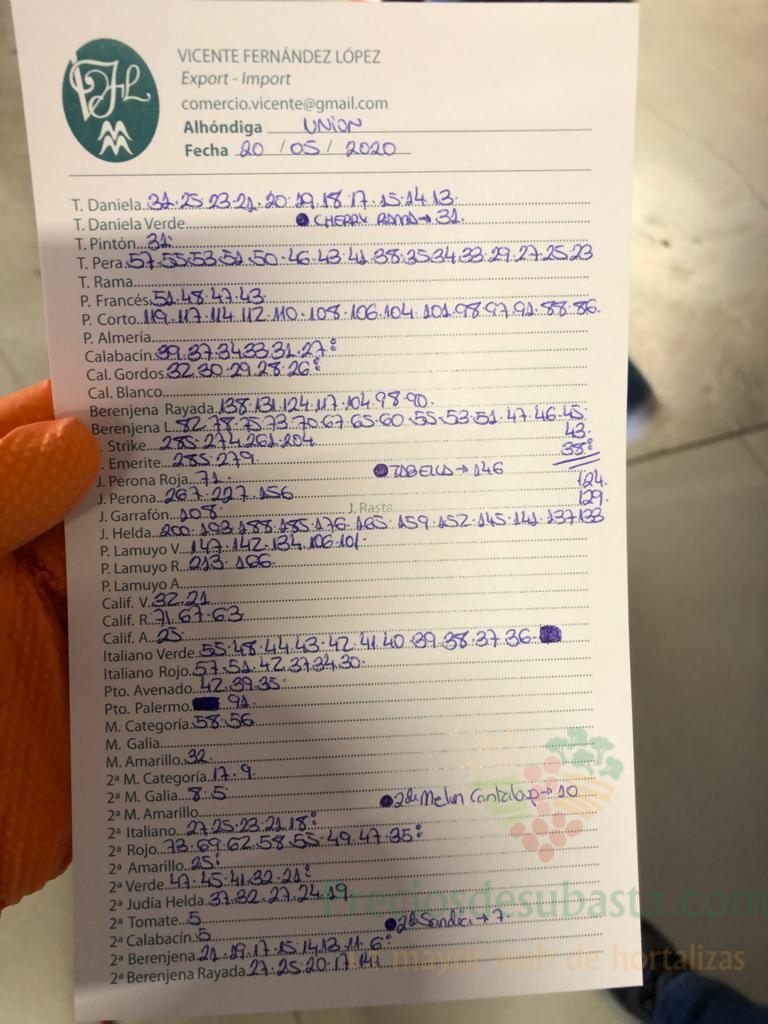 VICENTE FERNÁNDEZ LÓPEZ
Export - Import
comercio.vicente@gmail.com
Alhóndiga UNION
Fecha 20 / 05 / 2020
T. Daniela 31·25·23·21·20·19·18·17·15·14·13·
T. Daniela Verde ● CHERRY RAMA→ 31.
T. Pintón 31·
T. Pera 57·55·53·51·50·46·43·41·38·35·34·33·29·27·25·23
T. Rama
P. Francés 51·48·47·43·
P. Corto 119·117·114·112·110·108·106·104·101·98·97·91·88·86·
P. Almería
Calabacín 39·37·34·33·31·27·
Cal. Gordos 32·30·29·28·26·
Cal. Blanco
Berenjena Rayada 138·131·124·117·104·98·90·
Berenjena L 82·78·75·73·70·67·65·60·55·53·51·47·46·45·
43·
Strike 285·274·261·204
38·
Emerite 285·279
J. Perona Roja 71 ● TABELLA→ 146
J. Perona 267·227·156
124·
J. Garrafón 108· J. Rasta
129·
J. Helda 200·193·188·185·176·165·159·152·145·141·137·133
P. Lamuyo V. 147·142·134·106·101·
P. Lamuyo R. 213·166
P. Lamuyo A
Calif. V. 32·21
Calif. R. 71·67·63
Calif. A. 25
Italiano Verde 55·48·44·43·42·41·40·39·38·37·36·
Italiano Rojo 57·51·42·37·34·30·
Pto. Avenado 42·39·35·
Pto. Palermo 91·
M. Categoría 58·56
M. Galia
M. Amarillo 32
2ª M. Categoría 17·9
2ª M. Galia 8·5
2ª M. Amarillo ● 2ªde Melon Cantaloup→ 10
2ª Italiano 27·25·23·21·18·
2ª Rojo 73·69·62·58·55·49·47·35·
2ª Amarillo 25·
2ª Verde 47·45·41·32·21·
2ª Judía Helda 37·32·27·24·19
2ª Tomate 5
2ª Calabacín 5 ● 2ªde Sandía→ 7
2ª Berenjena 21·19·17·15·14·13·11·6·
2ª Berenjena Rayada 27·25·20·17·14
Preciosdesubasta.com
La mayor web de hortalizas